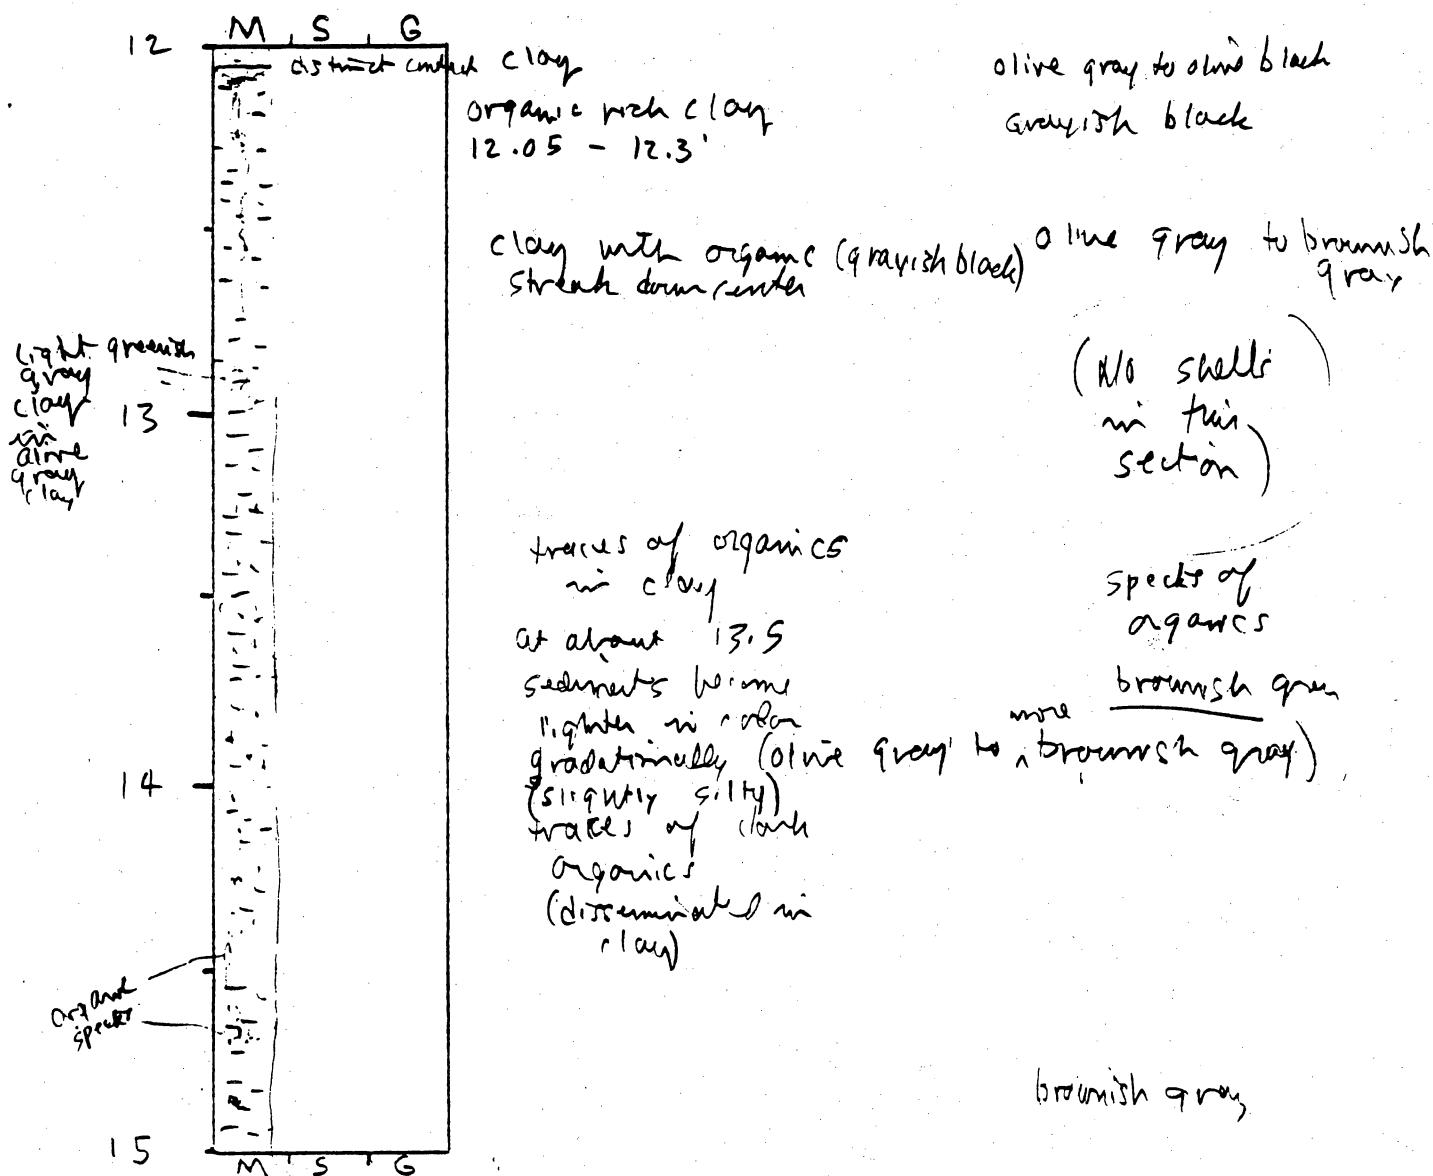 M S G
12
distinct contact clay
olive gray to olive black
organic rich clay
grayish black
12.05 - 12.3'
clay with organic (grayish black)
streak down center
olive gray to brownish
gray
light greenish
gray
clay
in
olive
gray
clay
13
(No shells
in this
section)
traces of organics
in clay
specks of
organics
at about 13.5
sediments become
lighter in color
brownish gray
more
gradationally (olive gray to ^ brownish gray)
14
(slightly silty)
traces of dark
organics
(disseminated in
clay)
organic
specks
brownish gray
15
M S G